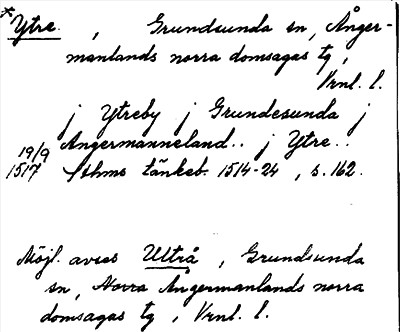 *Ytre. , Grundsunda sn, Ånger-
manlands norra domsagas tg,
Vrnl. l.
j Ytreby j Grundesunda j
Angermanneland.. j Ytre..
19/9 1517 Sthms tänkeb. 1514-24, s. 162.
Möjl. avses Ultrå, Grundsunda
sn, Norra Ångermanlands norra
domsagas tg, Vrnl. l.